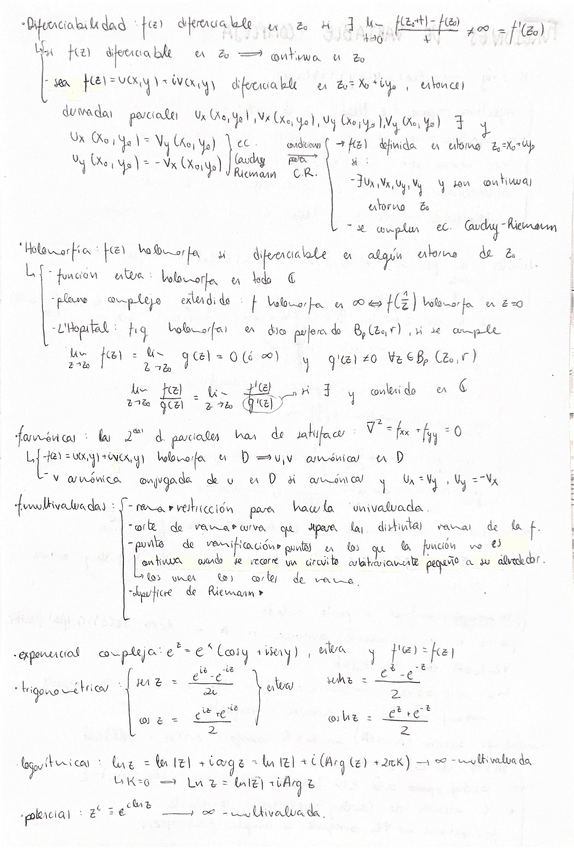 · Diferenciabilidad: f(z) diferenciable en z₀ si ∃ lim t→0 f(z₀+t) - f(z₀) / t ≠ ∞ = f'(z₀)
↳ si f(z) diferenciable en z₀ ⟹ continua en z₀
- sea f(z) = u(x,y) + iv(x,y) diferenciable en z₀ = x₀ + iy₀, entonces
derivadas parciales ux(x₀,y₀), vx(x₀,y₀), uy(x₀,y₀), vy(x₀,y₀) ∃ y
ux(x₀,y₀) = vy(x₀,y₀)
uy(x₀,y₀) = -vx(x₀,y₀)
ec. Cauchy Riemann
condiciones para C.R.
→ f(z) definida en entorno z₀ = x₀ + iy₀
si:
- ∃ ux, vx, uy, vy y son continuas
entorno z₀
- se cumplen ec. Cauchy-Riemann
· Holomorfía: f(z) holomorfa si diferenciable en algún entorno de z₀
↳ - función entera: holomorfa en todo ℂ
- plano complejo extendido: f holomorfa en ∞ ⇔ f(1/z) holomorfa en z=0
- L'Hopital: f, g holomorfas en disco perforado Bp(z₀,r), si se cumple
lim z→z₀ f(z) = lim z→z₀ g(z) = 0 (ó ∞) y g'(z) ≠ 0 ∀z ∈ Bp(z₀,r)
lim z→z₀ f(z)/g(z) = lim z→z₀ f'(z)/g'(z) → si ∃ y contenido en ℂ
· f.armónicas: las 2ª d. parciales han de satisfacer: ∇² = fxx + fyy = 0
↳ - f(z) = u(x,y) + iv(x,y) holomorfa en D ⟹ u, v armónicas en D
- v armónica conjugada de u en D si armónica y ux = vy, uy = -vx
· f.multivaluadas: - rama • restricción para hacerla univaluada.
- corte de rama • curva que separa las distintas ramas de la f.
- punto de ramificación • puntos en los que la función no es
continua cuando se recorre un circuito arbitrariamente pequeño a su alrededor.
↳ los unen los cortes de rama.
- superficie de Riemann •
· exponencial compleja: eᶻ = eˣ (cosy + iseny), entera y f'(z) = f(z)
· trigonométricas: sen z = (e^{iz} - e^{-iz}) / 2i entera senh z = (e^z - e^{-z}) / 2
cos z = (e^{iz} + e^{-iz}) / 2 cosh z = (e^z + e^{-z}) / 2
· logarítmicas: ln z = ln|z| + i arg z = ln|z| + i(Arg(z) + 2πK) → ∞-multivaluada
↳ K=0 → Ln z = ln|z| + i Arg z
· potencial: z^c = e^{c ln z} → ∞-multivaluada.